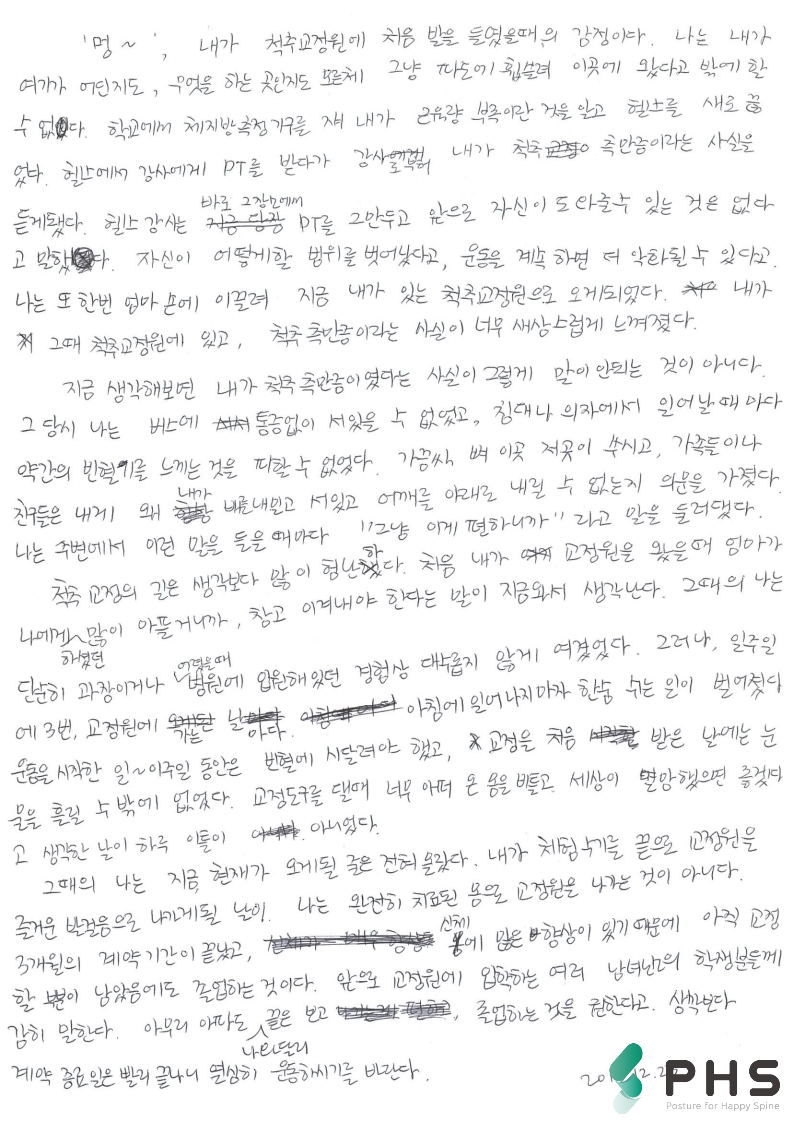 '멍~', 내가 척추교정원에 처음 발을 들였을때의 감정이다. 나는 내가
여기가 어딘지도, 무엇을 하는 곳인지도 모른체 그냥 파도에 휩쓸려 이곳에 왔다고 밖에 할
수 없었다. 학교에서 체지방측정기구를 재 내가 근육량 부족이란 것을 알고 헬스를 새로 끊
었다. 헬스에서 강사에게 PT를 받다가 강사로부터 내가 척추 측만증이라는 사실을
듣게됐다. 헬스 강사는 바로 그장소에서 PT를 그만두고 앞으로 자신이 도와줄수 있는 것은 없다
고 말했다. 자신이 어떻게할 범위를 벗어났다고, 운동을 계속 하면 더 악화될 수 있다고.
나는 또 한번 엄마 손에 이끌려 지금 내가 있는 척추교정원으로 오게되었다. 내가
그때 척추교정원에 있고, 척추 측만증이라는 사실이 너무 새삼스럽게 느껴졌다.
지금 생각해보면 내가 척추 측만증이였다는 사실이 그렇게 말이 안되는 것이 아니다.
그 당시 나는 버스에 통증없이 서있을 수 없었고, 침대나 의자에서 일어날 때 마다
약간의 빈혈기를 느끼는 것을 피할 수 없었다. 가끔씩 뼈 이곳 저곳이 쑤시고, 가족들이나
친구들은 내게 왜 내가 배를내밀고 서있고 어깨를 아래로 내릴 수 없는지 의문을 가졌다.
나는 주변에서 이런 말을 들을 때마다 "그냥 이게 편하니까" 라고 말을 둘러댔다.
척추 교정의 길은 생각보다 많이 험난하였다. 처음 내가 교정원을 왔을 때 엄마가
나에게 많이 아플거니까, 참고 이겨내야 한다는 말이 지금와서 생각난다. 그때의 나는
하셨던
단순히 과장이거나 어렸을때 병원에 입원해있던 경험상 대수롭지 않게 여겼었다. 그러나, 일주일
에 3번, 교정원에 가는 날마다. 아침에 일어나자마자 한숨 쉬는 일이 벌어졌다
운동을 시작한 일~이주일 동안은 빈혈에 시달려야 했고, 교정을 처음 받은 날에는 눈
물을 흘릴 수 밖에 없었다. 교정도구를 댈때 너무 아파 온 몸을 비틀고 세상이 멸망했으면 좋겠다
고 생각한 날이 하루 이틀이 아니었다.
그때의 나는 지금 현재가 오게될 줄은 전혀 몰랐다. 내가 체험수기를 끝으로 교정원을
즐거운 발걸음으로 나가게될 날이. 나는 완전히 치료된 몸으로 교정원을 나가는 것이 아니다.
3개월의 계약 기간이 끝났고, 신체에 많은 향상이 있기 때문에 아직 교정
할 분이 남았음에도 졸업하는 것이다. 앞으로 교정원에 입학하는 여러 남녀노소의 학생분들께
감히 말한다. 아무리 아파도 끝은 보고, 졸업하는 것을 권한다고. 생각보다
나의달리
계약 종료일은 빨리 끝나니 열심히 운동하시기를 바란다.
PHS
Posture for Happy Spine